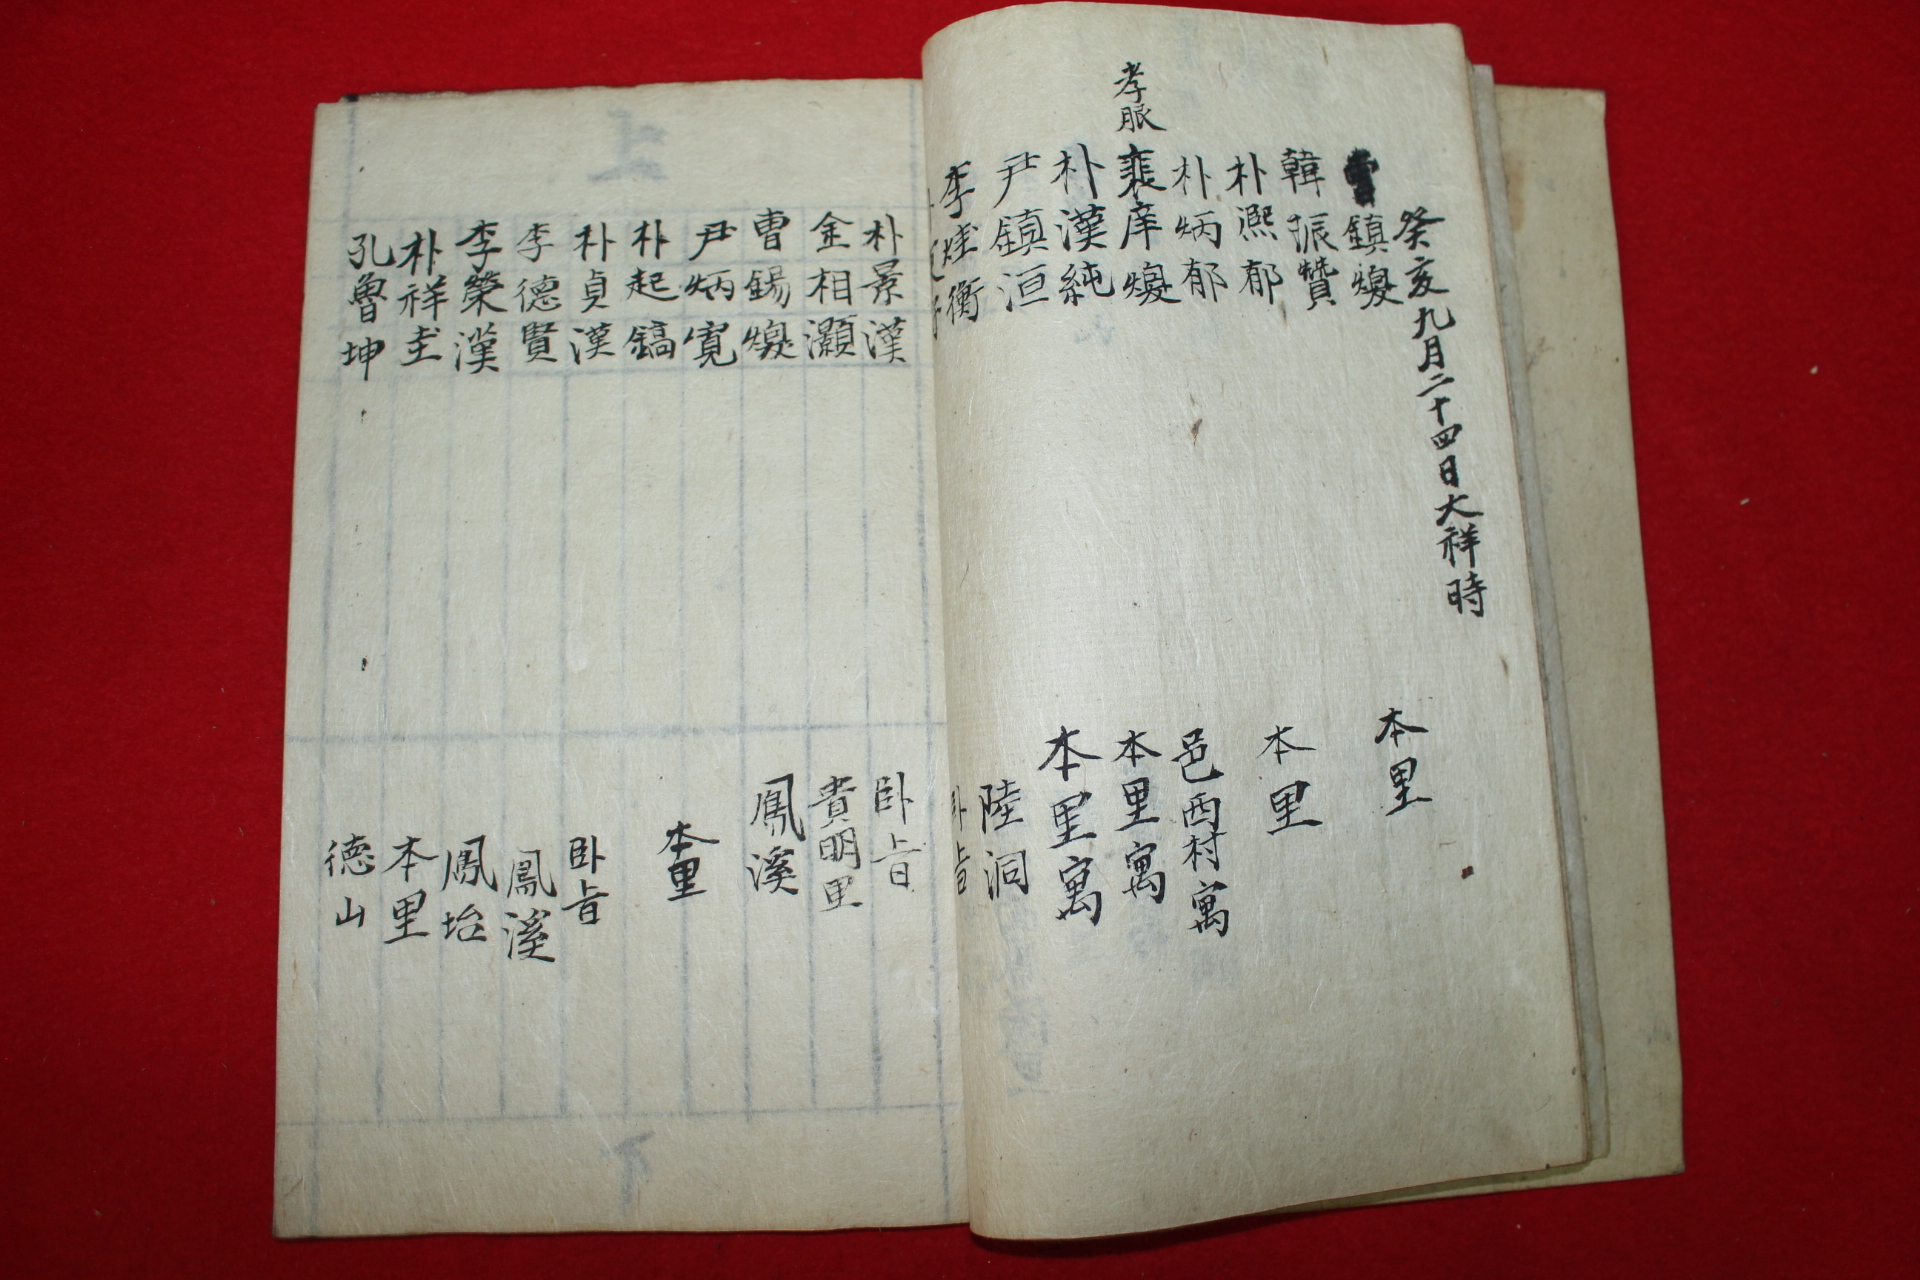 癸亥九月二十四日大祥時
曺鎮煥 本里
韓振贊
朴熙郁 本里
朴炳郁 邑西村寓
孝服 裵庠煥 本里寓
朴漢純 本里寓
尹鎮洹 陸洞
李煃衡 臥旨
朴景漢 臥旨
金相灝 貴明里
曺錫煥 鳳溪
尹炳寬 本里
朴起鎬
朴貞漢 臥旨
李德賢 鳳溪
李榮漢 鳳坮
朴祥圭 本里
孔魯坤 德山